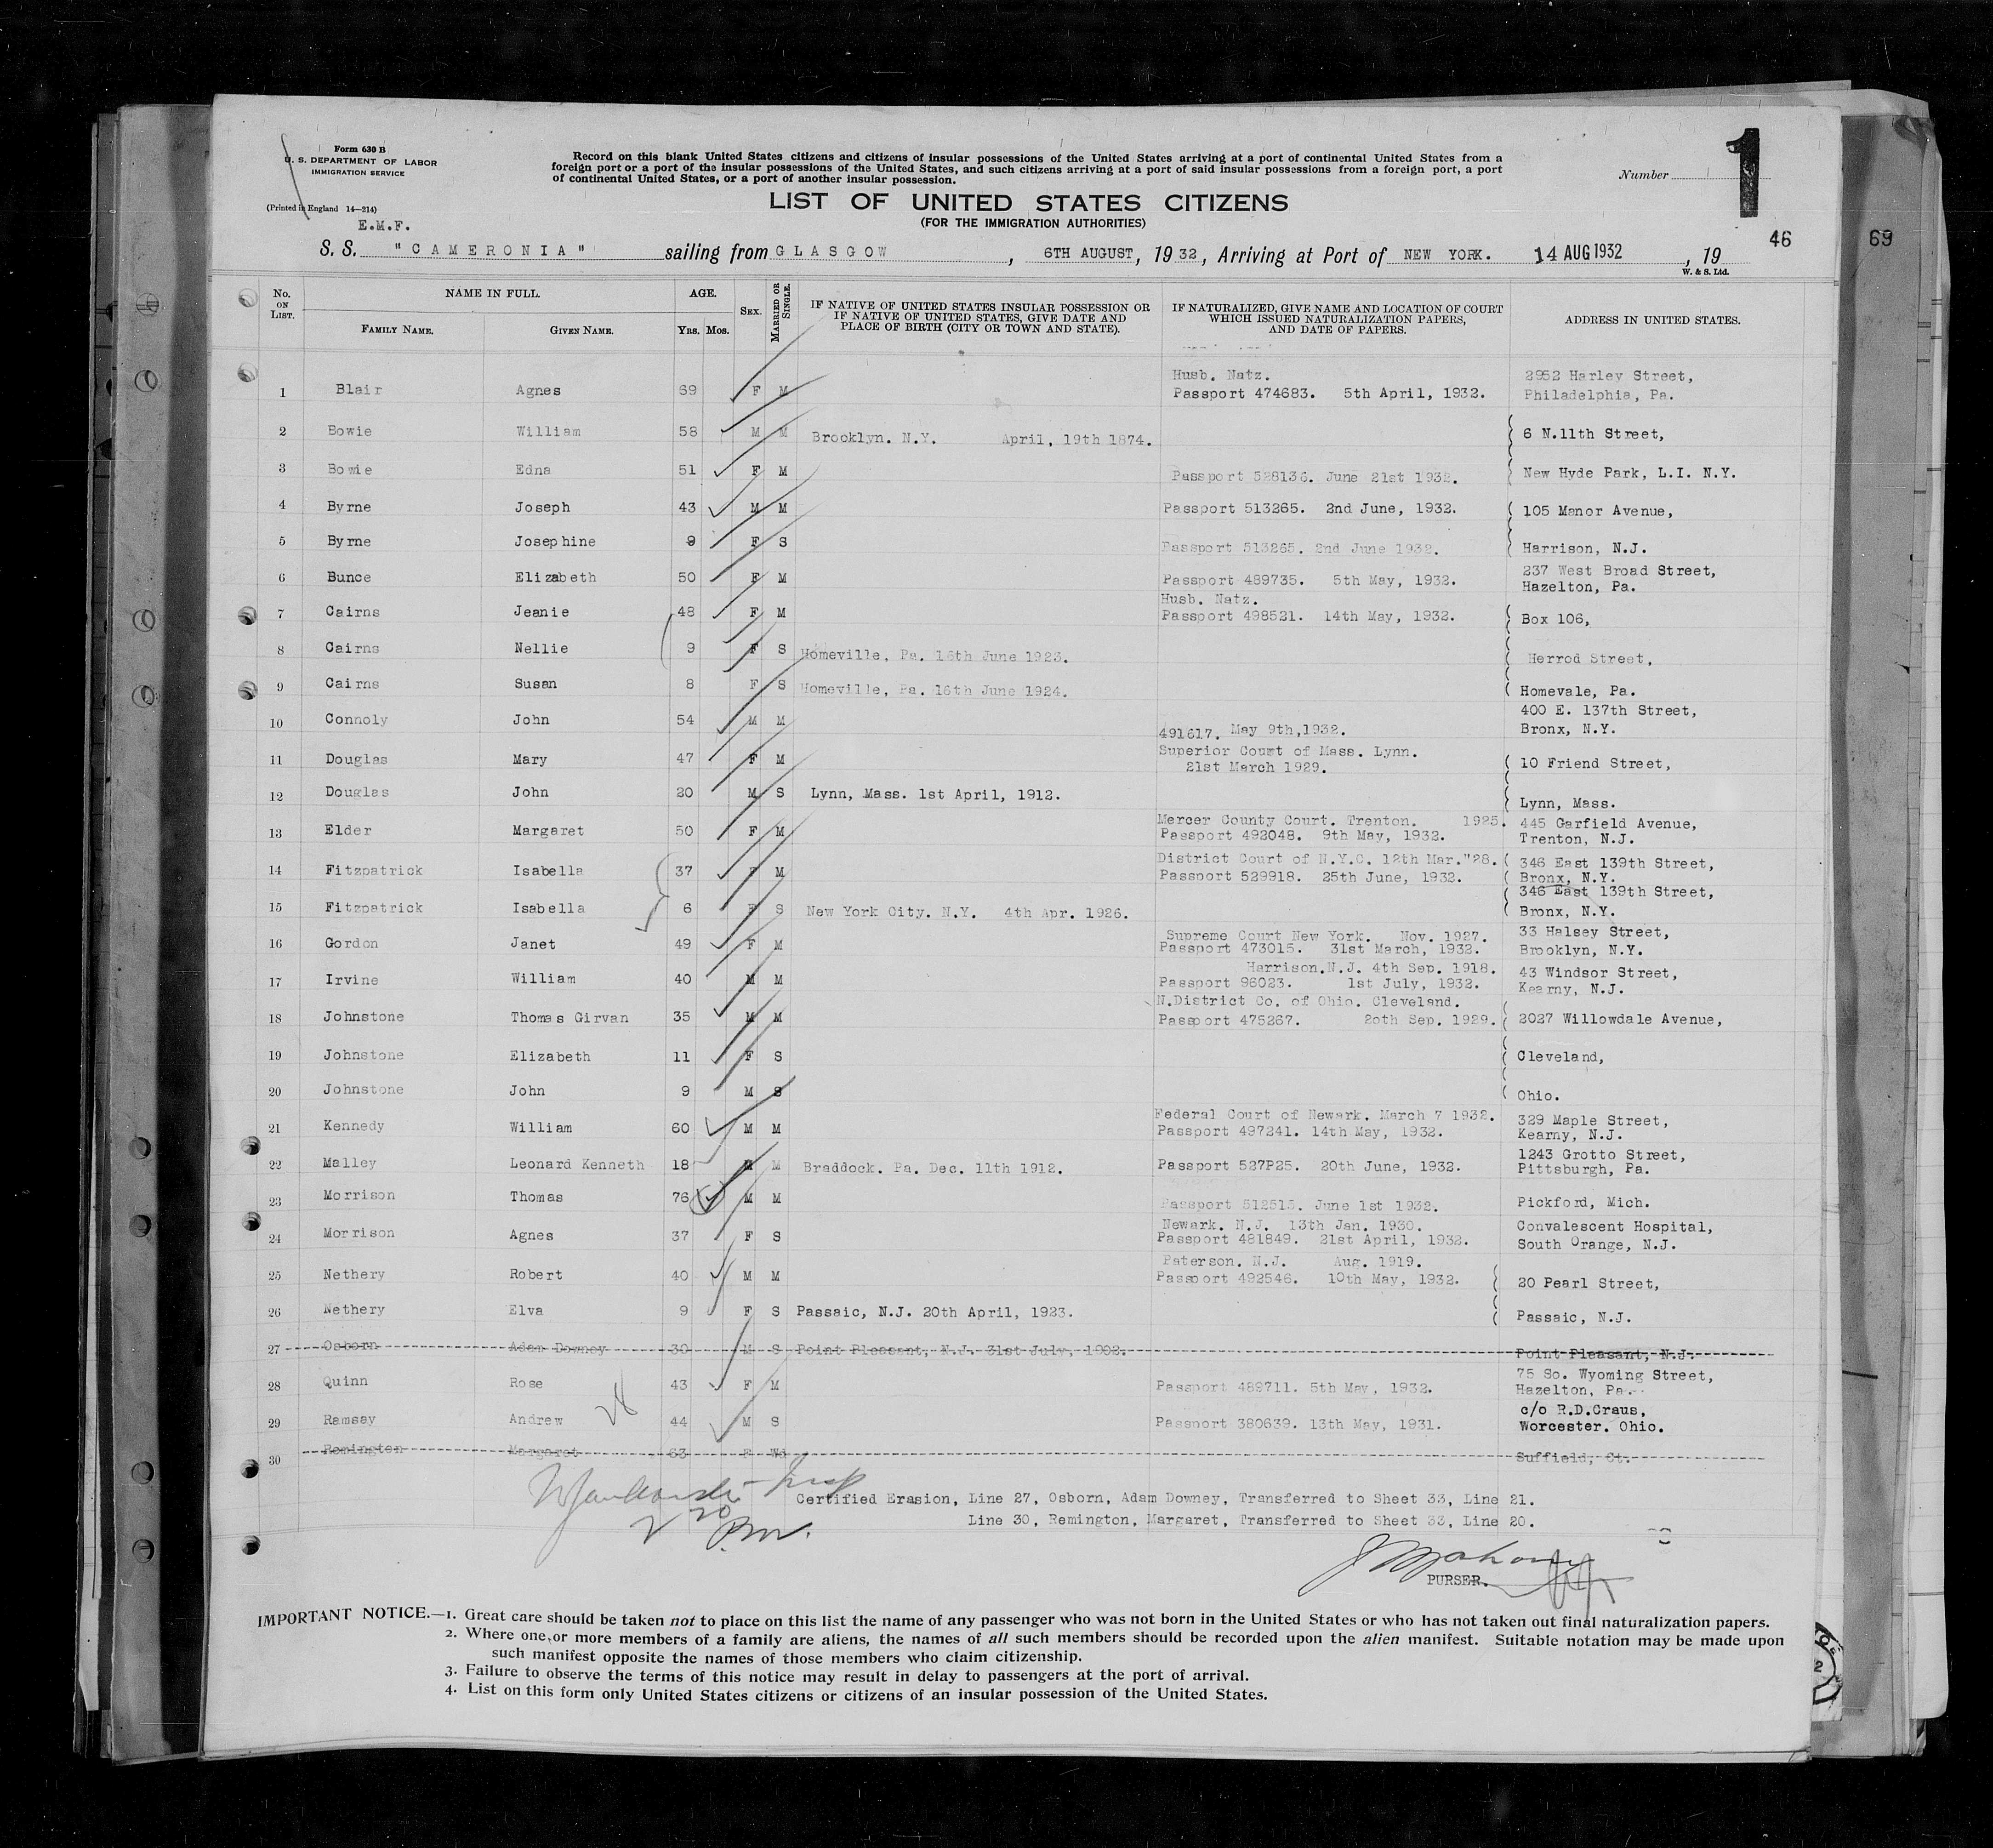 Form 630 B
U. S. DEPARTMENT OF LABOR
IMMIGRATION SERVICE
(Printed in England 14—214)
E.M.F.
Record on this blank United States citizens and citizens of insular possessions of the United States arriving at a port of continental United States from a
foreign port or a port of the insular possessions of the United States, and such citizens arriving at a port of said insular possessions from a foreign port, a port
of continental United States, or a port of another insular possession.
Number 1
LIST OF UNITED STATES CITIZENS
(FOR THE IMMIGRATION AUTHORITIES)
46
69
S. S. "CAMERONIA" sailing from GLASGOW, 6TH AUGUST, 1932, Arriving at Port of NEW YORK. 14 AUG 1932, 19
W. & S. Ltd.
No. ON LIST. NAME IN FULL. FAMILY NAME. GIVEN NAME. AGE. YRS. MOS. SEX. MARRIED OR SINGLE. IF NATIVE OF UNITED STATES INSULAR POSSESSION OR IF NATIVE OF UNITED STATES, GIVE DATE AND PLACE OF BIRTH (CITY OR TOWN AND STATE). IF NATURALIZED, GIVE NAME AND LOCATION OF COURT WHICH ISSUED NATURALIZATION PAPERS, AND DATE OF PAPERS. ADDRESS IN UNITED STATES.
1 Blair Agnes 69 F M Husb. Natz. Passport 474683. 5th April, 1932. 2952 Harley Street, Philadelphia, Pa.
2 Bowie William 58 M M Brooklyn. N.Y. April, 19th 1874. 6 N.11th Street,
3 Bowie Edna 51 F M Passport 528136. June 21st 1932. New Hyde Park, L.I. N.Y.
4 Byrne Joseph 43 M M Passport 513265. 2nd June, 1932. 105 Manor Avenue,
5 Byrne Josephine 9 F S Passport 513265. 2nd June 1932. Harrison, N.J.
6 Bunce Elizabeth 50 F M Passport 489735. 5th May, 1932. 237 West Broad Street, Hazelton, Pa.
7 Cairns Jeanie 48 F M Husb. Natz. Passport 498521. 14th May, 1932. Box 106,
8 Cairns Nellie 9 F S Homeville, Pa. 16th June 1923. Herrod Street,
9 Cairns Susan 8 F S Homeville, Pa. 16th June 1924. Homevale, Pa.
10 Connoly John 54 M M 491617. May 9th,1932. 400 E. 137th Street, Bronx, N.Y.
11 Douglas Mary 47 F M Superior Court of Mass. Lynn. 21st March 1929. 10 Friend Street,
12 Douglas John 20 M S Lynn, Mass. 1st April, 1912. Lynn, Mass.
13 Elder Margaret 50 F M Mercer County Court. Trenton. 1925. Passport 492048. 9th May, 1932. 445 Garfield Avenue, Trenton, N.J.
14 Fitzpatrick Isabella 37 F M District Court of N.Y.C. 12th Mar."28. Passport 529918. 25th June, 1932. 346 East 139th Street, Bronx, N.Y.
15 Fitzpatrick Isabella 6 F S New York City. N.Y. 4th Apr. 1926. 346 East 139th Street, Bronx, N.Y.
16 Gordon Janet 49 F M Supreme Court New York. Nov. 1927. Passport 473015. 31st March, 1932. 33 Halsey Street, Brooklyn, N.Y.
17 Irvine William 40 M M Harrison.N.J. 4th Sep. 1918. Passport 96023. 1st July, 1932. 43 Windsor Street, Kearny, N.J.
18 Johnstone Thomas Girvan 35 M M N.District Co. of Ohio. Cleveland. Passport 475267. 20th Sep. 1929. 2027 Willowdale Avenue,
19 Johnstone Elizabeth 11 F S Cleveland,
20 Johnstone John 9 M S Ohio.
21 Kennedy William 60 M M Federal Court of Newark. March 7 1932. Passport 497241. 14th May, 1932. 329 Maple Street, Kearny, N.J.
22 Malley Leonard Kenneth 18 M M Braddock. Pa. Dec. 11th 1912. Passport 527P25. 20th June, 1932. 1243 Grotto Street, Pittsburgh, Pa.
23 Morrison Thomas 76 M M Passport 512515. June 1st 1932. Pickford, Mich.
24 Morrison Agnes 37 F S Newark. N.J. 13th Jan. 1930. Passport 481849. 21st April, 1932. Convalescent Hospital, South Orange, N.J.
25 Nethery Robert 40 M M Paterson. N.J. Aug. 1919. Passport 492546. 10th May, 1932. 20 Pearl Street,
26 Nethery Elva 9 F S Passaic, N.J. 20th April, 1923. Passaic, N.J.
27 Osborn Adam Downey 30 M S Point Pleasant, N.J. 31st July, 1902. Point Pleasant, N.J.
28 Quinn Rose 43 F M Passport 489711. 5th May, 1932. 75 So. Wyoming Street, Hazelton, Pa.
29 Ramsay Andrew 44 M S Passport 380639. 13th May, 1931. c/o R.D.Craus, Worcester. Ohio.
30 Remington Margaret 63 F Wd Suffield, Ct.
Certified Erasion, Line 27, Osborn, Adam Downey, Transferred to Sheet 33, Line 21.
Line 30, Remington, Margaret, Transferred to Sheet 33, Line 20.
2 20 P.M.
PURSER.
IMPORTANT NOTICE.—1. Great care should be taken not to place on this list the name of any passenger who was not born in the United States or who has not taken out final naturalization papers.
2. Where one or more members of a family are aliens, the names of all such members should be recorded upon the alien manifest. Suitable notation may be made upon
such manifest opposite the names of those members who claim citizenship.
3. Failure to observe the terms of this notice may result in delay to passengers at the port of arrival.
4. List on this form only United States citizens or citizens of an insular possession of the United States.